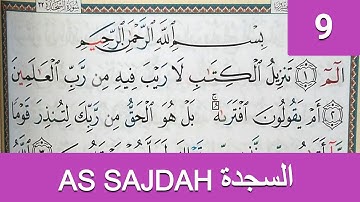 9
بِسْمِ ٱللَّهِ ٱلرَّحْمَٰنِ ٱلرَّحِيمِ
الٓمٓ ١ تَنزِيلُ ٱلْكِتَٰبِ لَا رَيْبَ فِيهِ مِن رَّبِّ ٱلْعَٰلَمِينَ
٢ أَمْ يَقُولُونَ ٱفْتَرَىٰهُ ۚ بَلْ هُوَ ٱلْحَقُّ مِن رَّبِّكَ لِتُنذِرَ قَوْمًا
AS SAJDAH السجدة